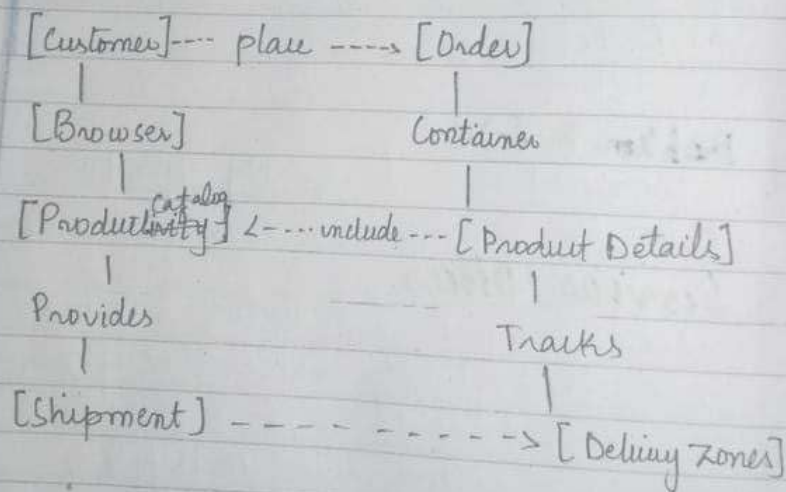 [Customer]---- place ----> [Order]
[Browser] Container
catalog
[Productivity] <----include--- [Product Details]
Provides
Tracks
[Shipment] - - - - - - - - - -> [Deliuy zones]